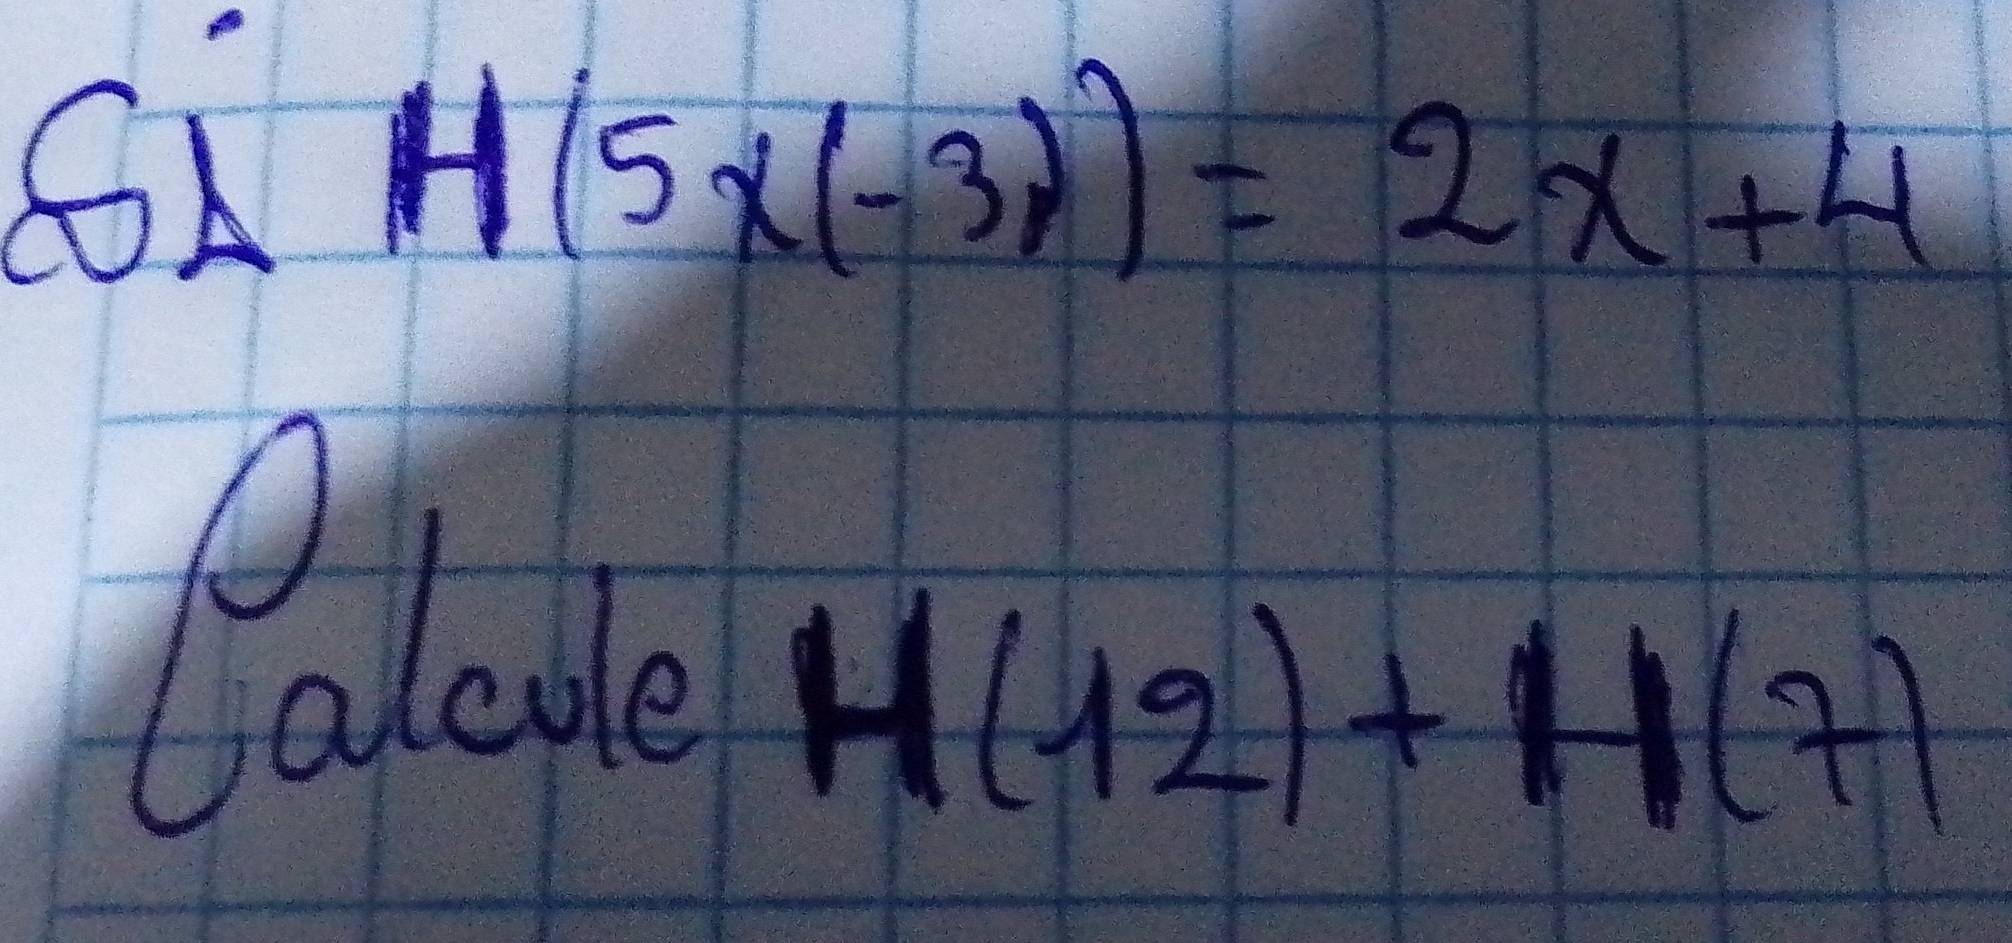 Si H(5x(-3)) = 2x+4
Calcule H(12) + H(7)